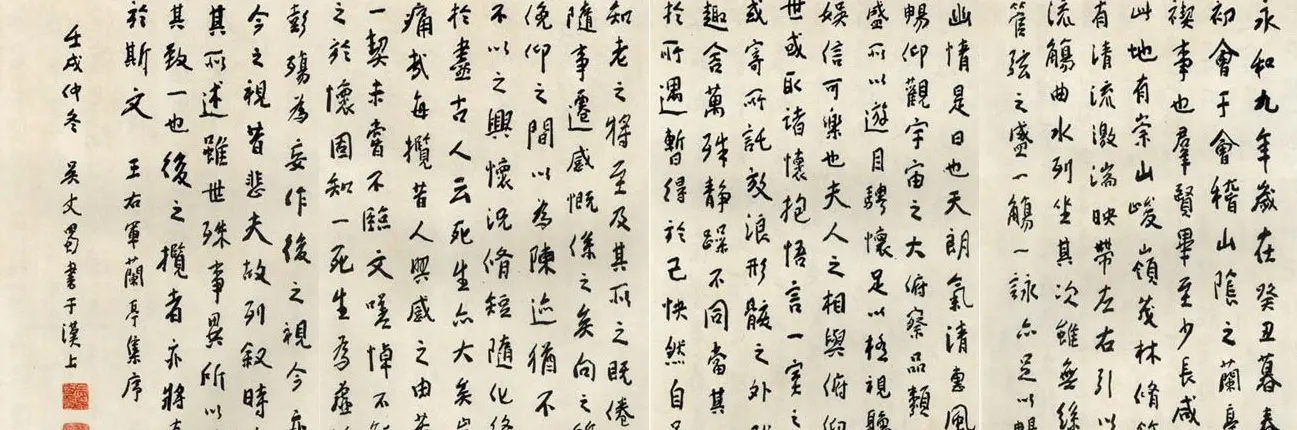 永和九年歲在癸丑暮春
初會于會稽山陰之蘭亭
禊事也羣賢畢至少長咸
此地有崇山峻嶺茂林脩
有清流激湍映帶左右引以
流觴曲水列坐其次雖無絲
管弦之盛一觴一詠亦足以暢
幽情是日也天朗氣清惠風
暢仰觀宇宙之大俯察品類
盛所以遊目騁懷足以極視聽
娛信可樂也夫人之相與俯仰
世或取諸懷抱悟言一室之
或寄所託放浪形骸之外
趣舍萬殊靜躁不同當其
於所遇暫得於己快然自
知老之將至及其所之既倦
隨事遷感慨係之矣向之
俛仰之間以為陳迹猶不
不以之興懷況脩短隨化終
於盡古人云死生亦大矣豈
痛哉每攬昔人興感之由若
一契未嘗不臨文嗟悼不
之於懷固知一死生為虛
彭殤為妄作後之視今亦
今之視昔悲夫故列敘時
其所述雖世殊事異所以
其致一也後之攬者亦將
於斯文 王右軍蘭亭集序
壬戌仲冬 吳丈蜀書于漢上